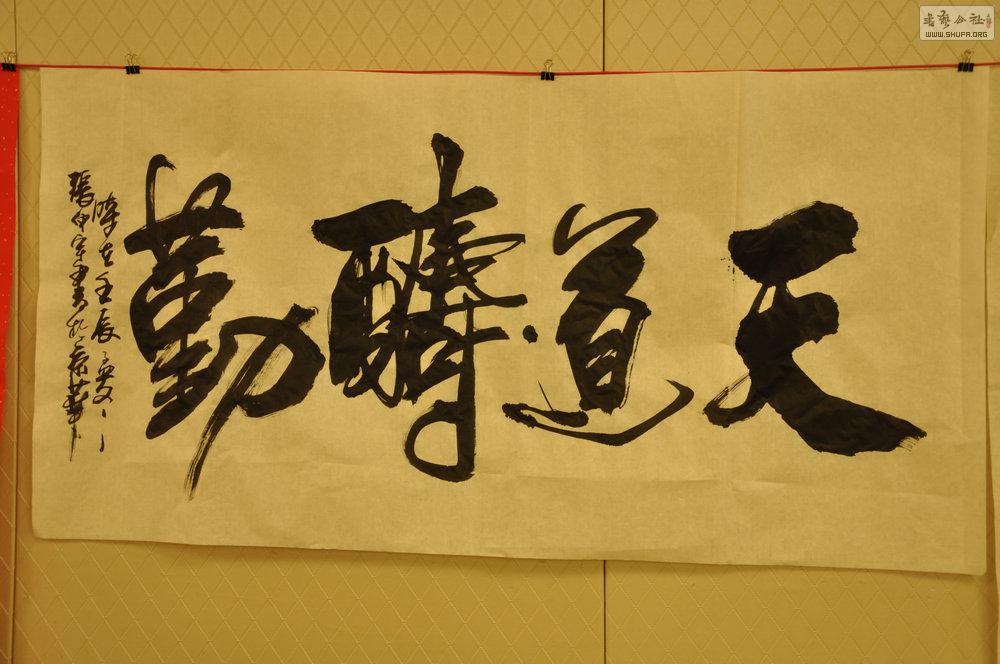 天道酬勤
時在壬辰夏
張中宇書於京華
书艺公社
WWW.SHUFA.ORG